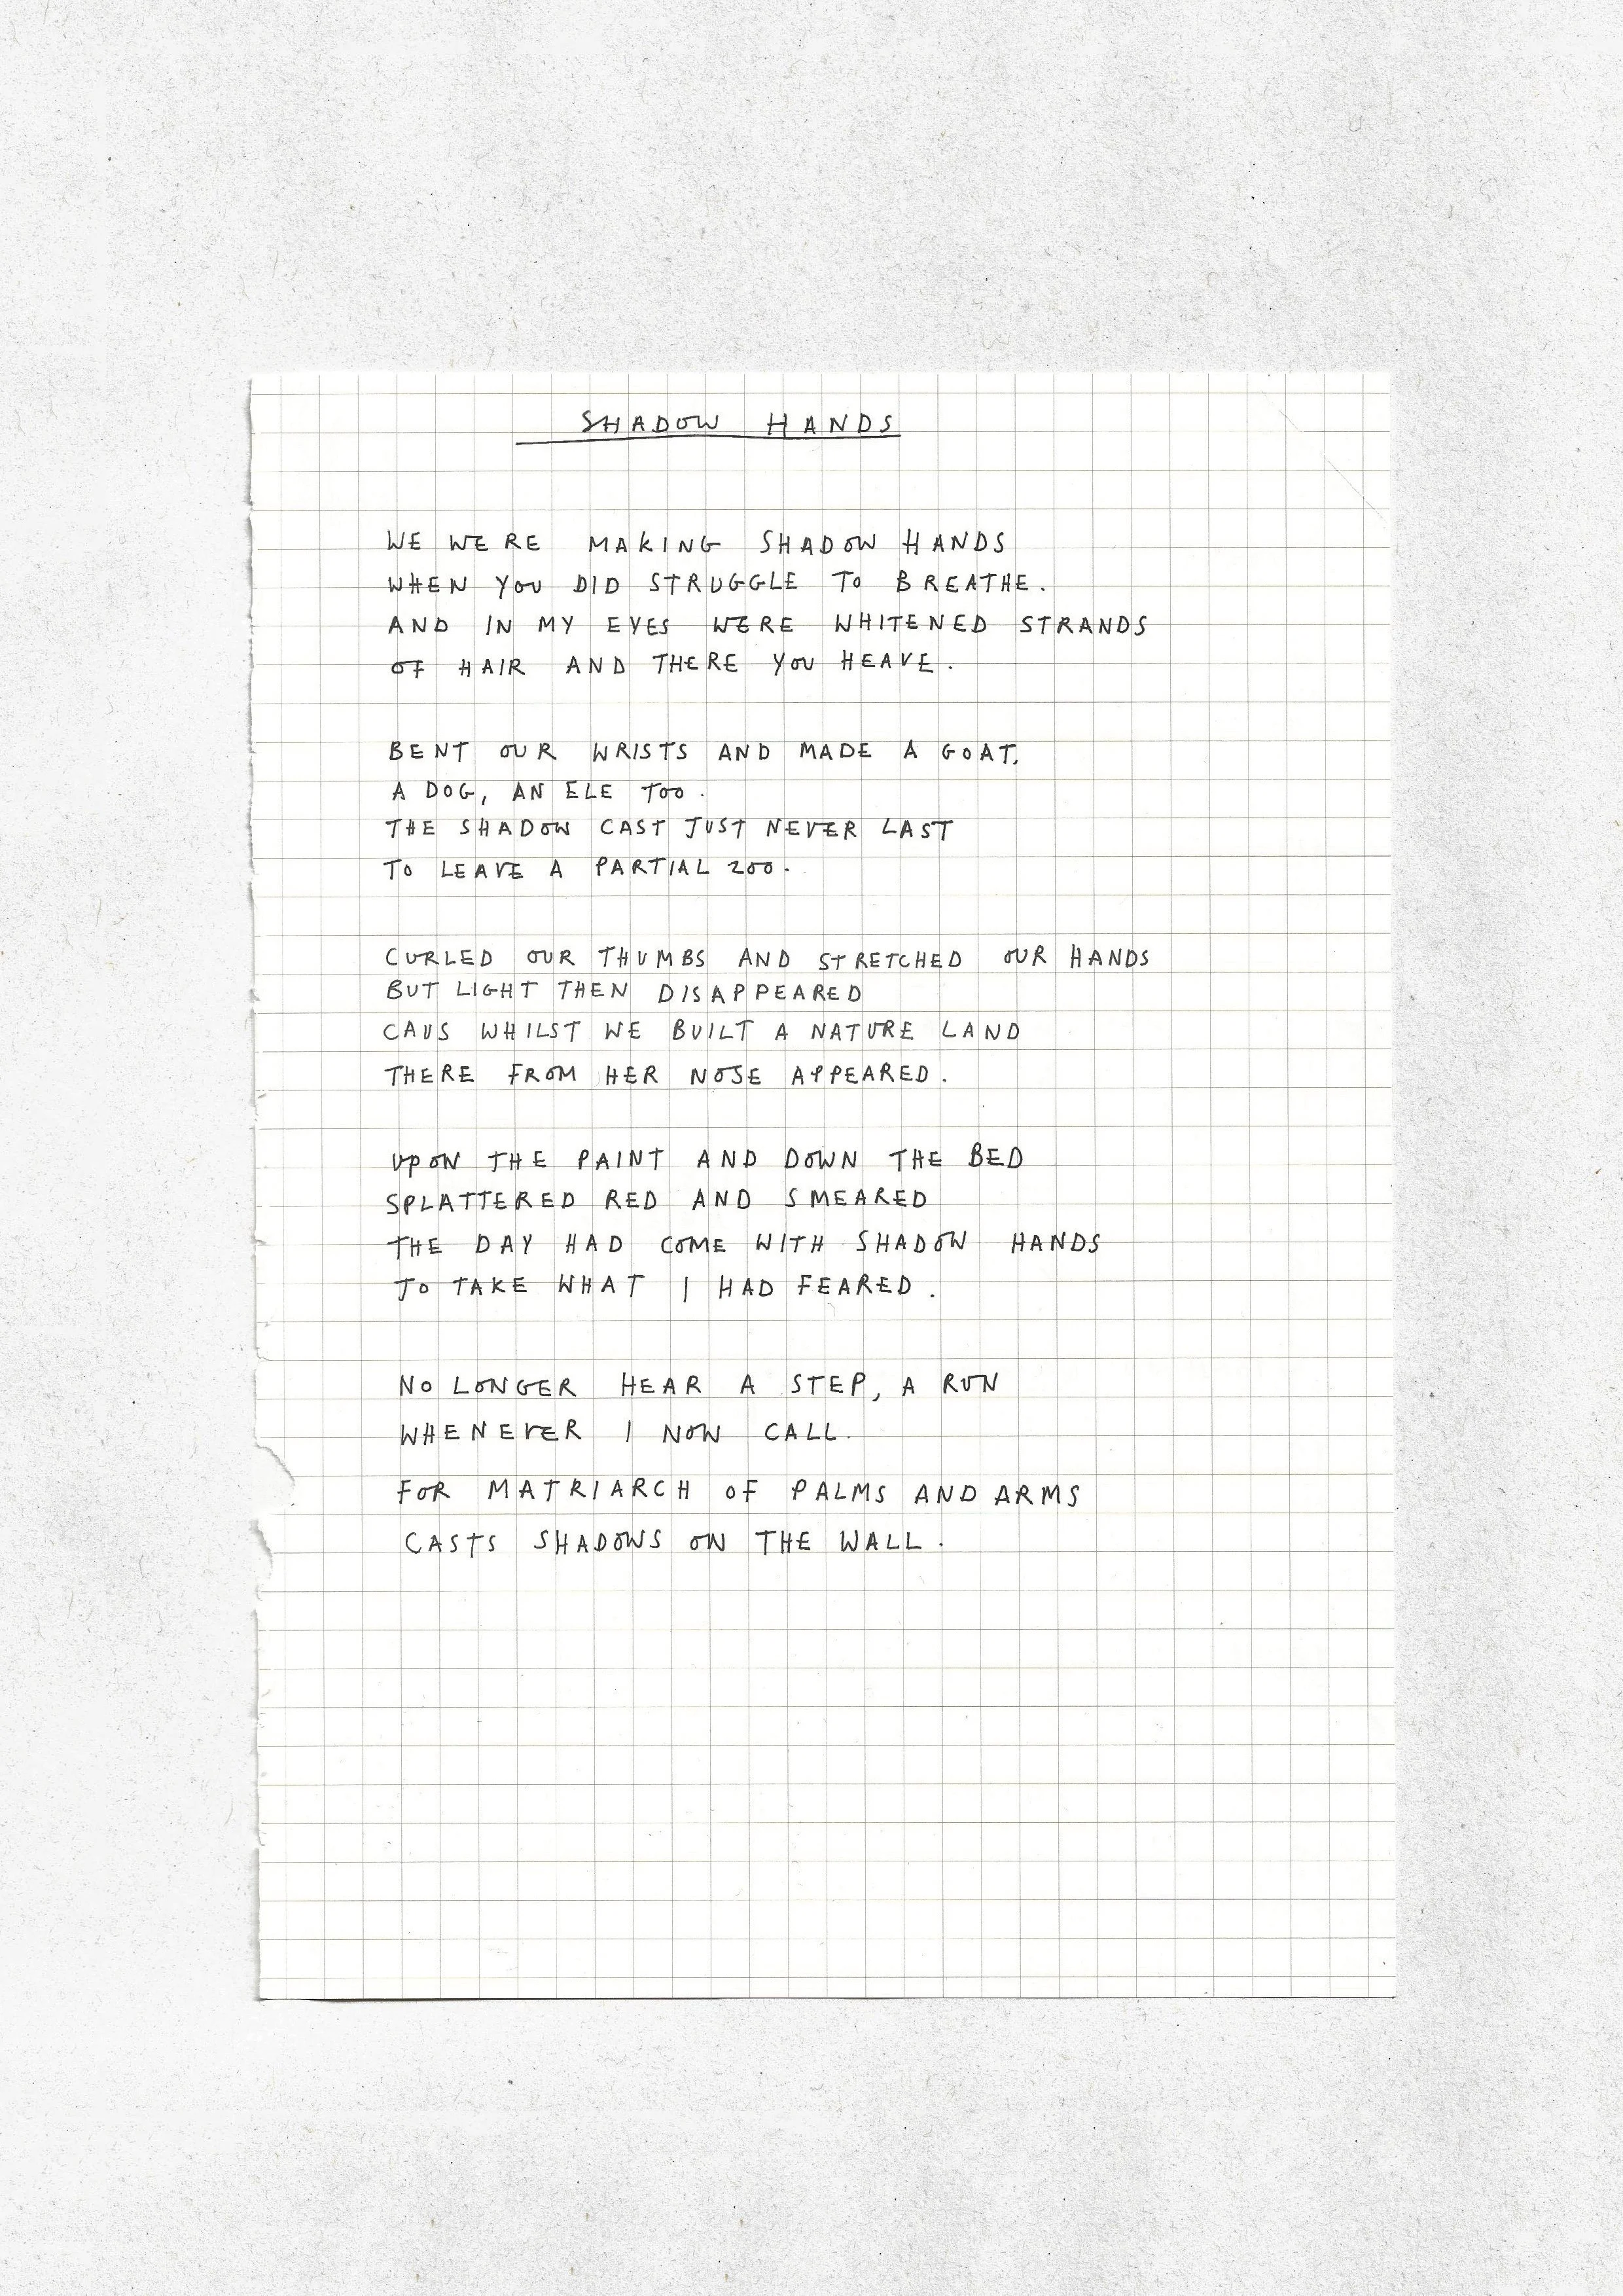 SHADOW HANDS
WE WERE MAKING SHADOW HANDS
WHEN YOU DID STRUGGLE TO BREATHE.
AND IN MY EYES WERE WHITENED STRANDS
OF HAIR AND THERE YOU HEAVE.
BENT OUR WRISTS AND MADE A GOAT,
A DOG, AN ELE TOO.
THE SHADOW CAST JUST NEVER LAST
TO LEAVE A PARTIAL ZOO.
CURLED OUR THUMBS AND STRETCHED OUR HANDS
BUT LIGHT THEN DISAPPEARED
CAUS WHILST WE BUILT A NATURE LAND
THERE FROM HER NOSE APPEARED.
UPON THE PAINT AND DOWN THE BED
SPLATTERED RED AND SMEARED
THE DAY HAD COME WITH SHADOW HANDS
TO TAKE WHAT I HAD FEARED.
NO LONGER HEAR A STEP, A RUN
WHENEVER I NOW CALL.
FOR MATRIARCH OF PALMS AND ARMS
CASTS SHADOWS ON THE WALL.